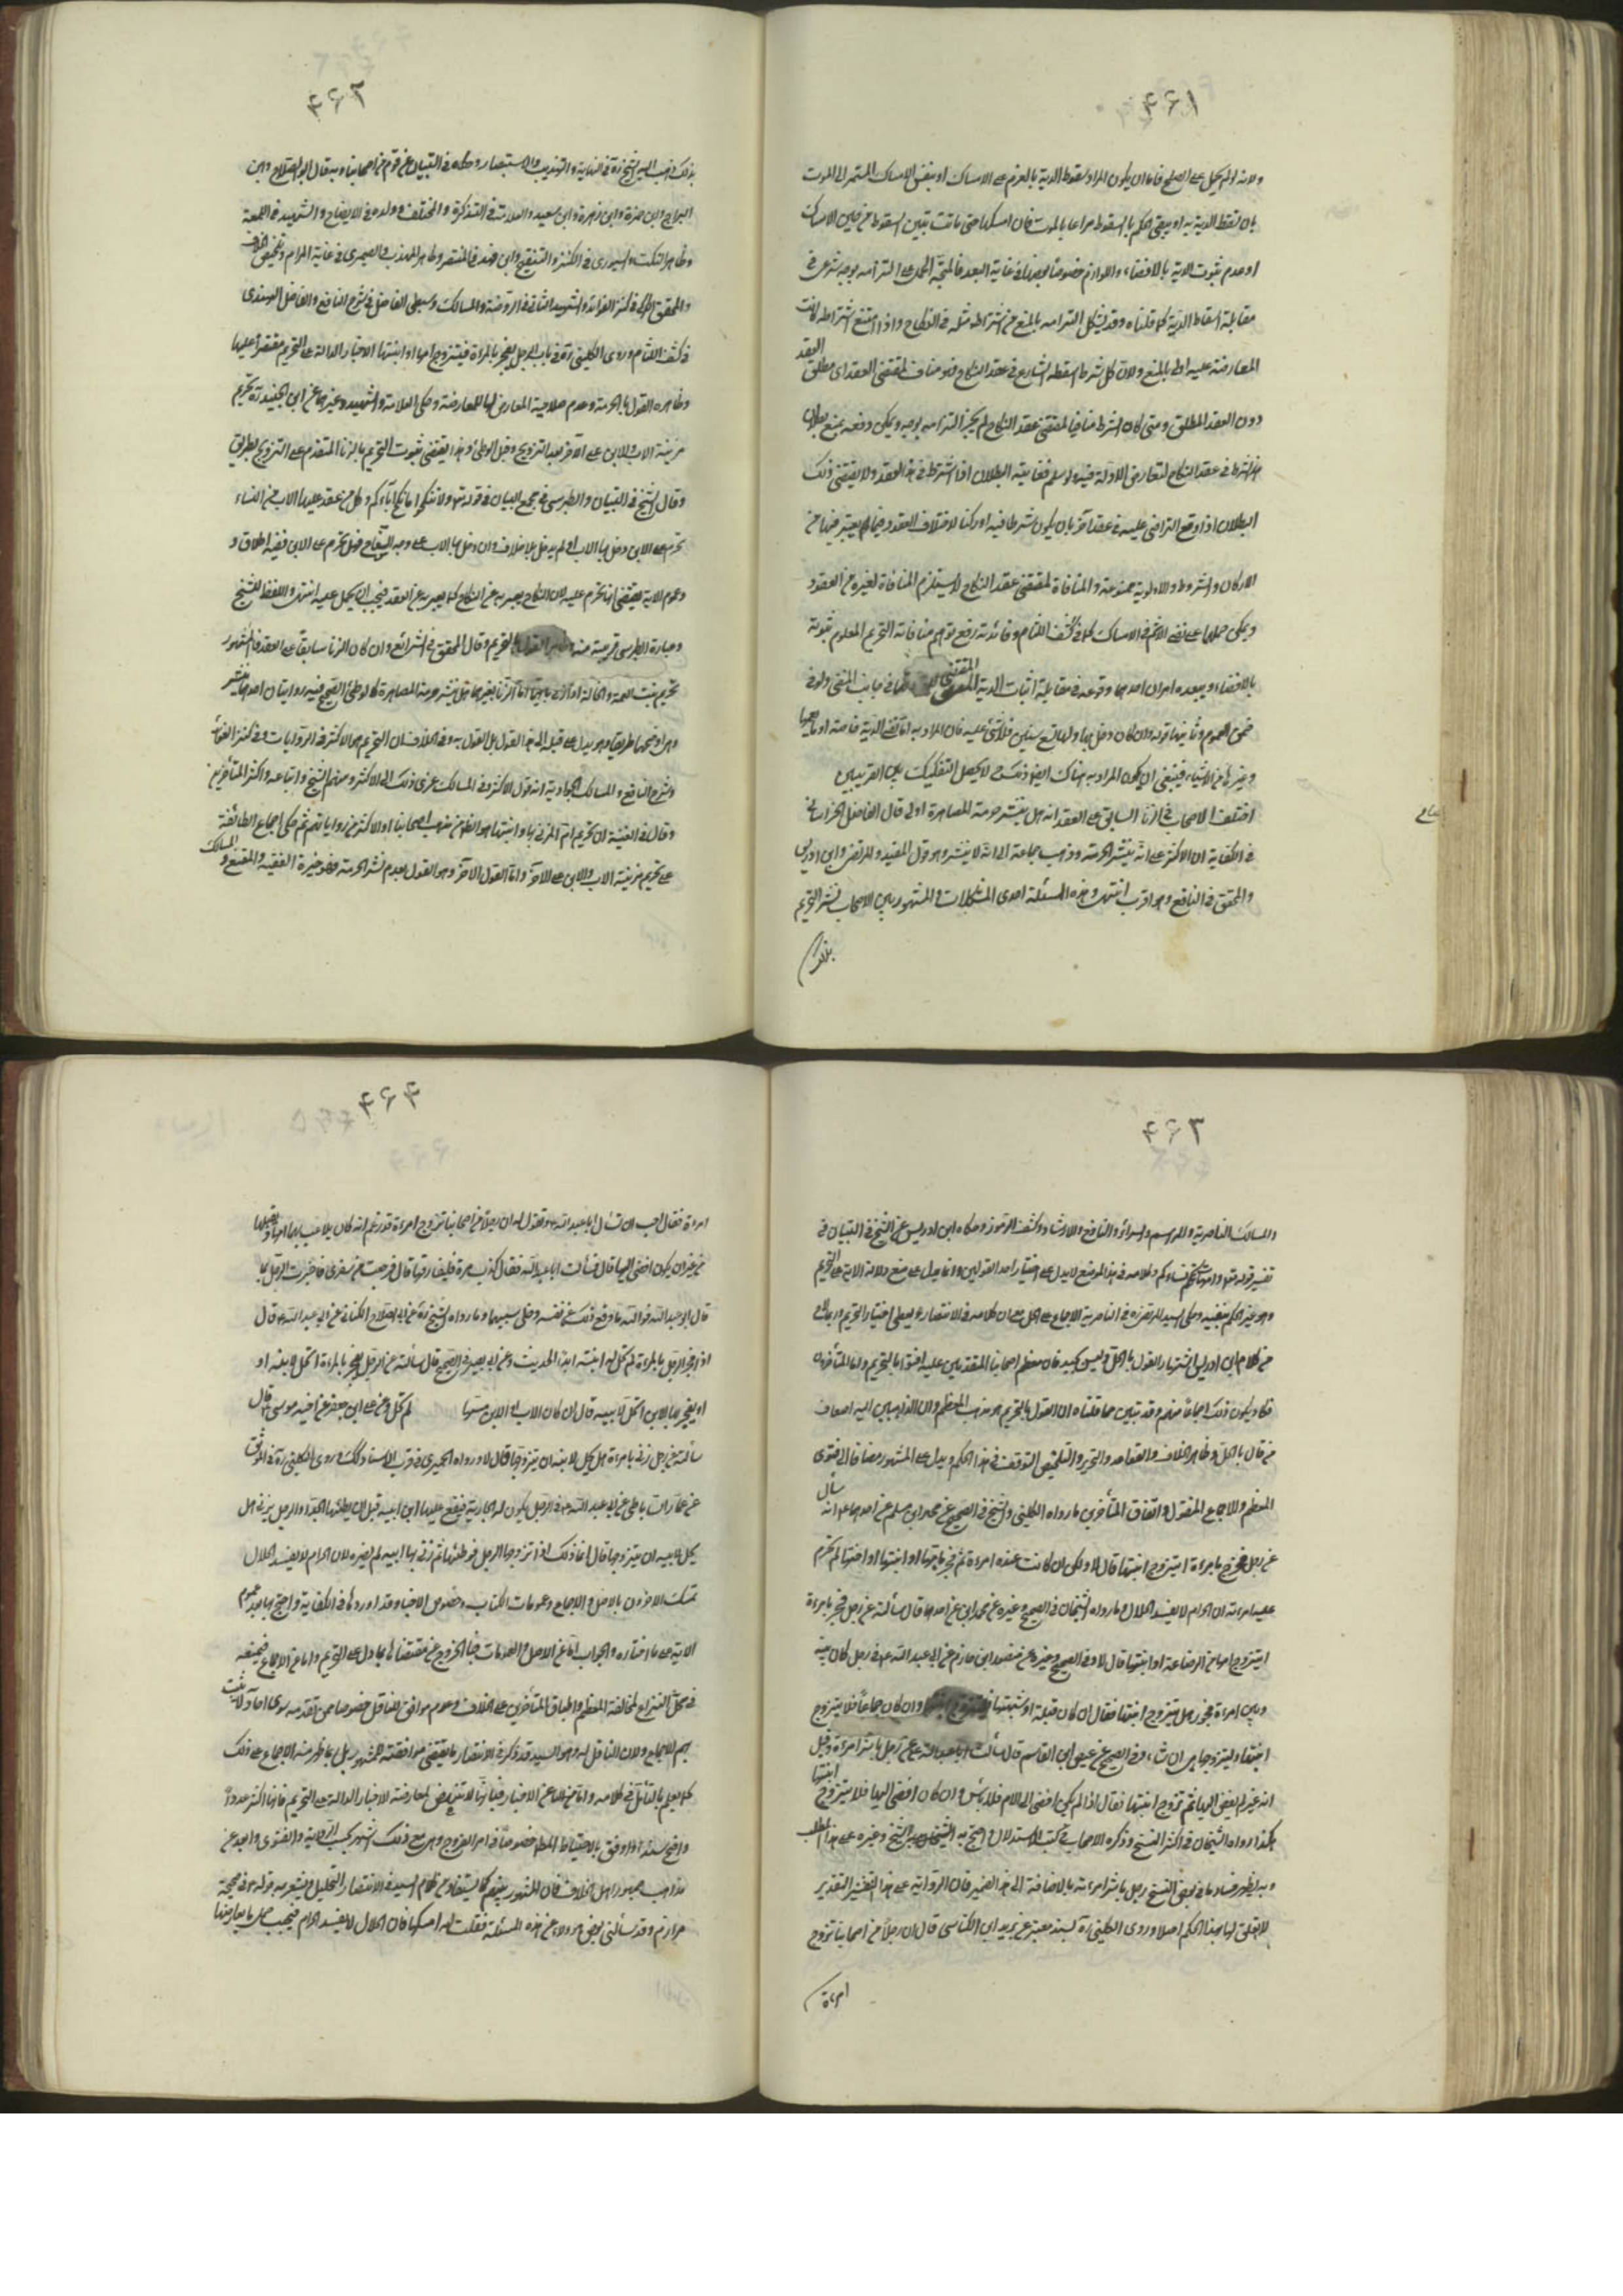 ۴۶۱
ولانه لم يحمل على الصلح فاما ان يكون المراد سقوط الدية بالعزم على الامساك او بنفس الامساك المستمر الى الموت
بان تسقط الدية به او يبقى الحكم بالسقوط مراعا بالموت فان امسكها حتى ماتت تبين السقوط من حين الامساك
او عدم ثبوت الدية بالافضاء واللوازم خصوصا بعضها في غاية البعد فالمتجه الحمل على التزامه بوجه شرعي في
مقابلة اسقاط الدية كما قلناه وقد يشكل التزامه بالمنع من اشتراط مثله في النكاح واذا امتنع اشتراطه كانت
المعارضة عليه اولى بالمنع ولان كل شرط اسقطه الشارع في عقد النكاح فهو مناف لمقتضى العقد اي مطلق العقد
دون العقد المطلق ومتى كان الشرط منافيا لمقتضى عقد النكاح لم يجز التزامه بوجه ويمكن دفعه بمنع بطلان
هذا الشرط في عقد النكاح لتعارض الادلة فيه ولو سلم فغايته البطلان اذا اشترط في هذا العقد ولا يقتضي ذلك
البطلان اذا وقع التراضي عليه في عقد آخر بان يكون شرطا فيه او ركنا لاختلاف العقود فيما يعتبر فيها من
الاركان والشروط والاولوية ممنوعة والمنافاة لمقتضى عقد النكاح لا يستلزم المنافاة لغيره من العقود
ويمكن حملها على نفي الاثم في الامساك كما في كشف اللثام وفائدته رفع توهم منافاته التحريم المعلوم ثبوته
بالافضاء ويبعده امران احدهما وقوعه في مقابلة اثبات الدية المقتضي في جانب المنفي ولو في
ضمن العموم وثانيهما قوله وان كان دخل بها ولها تسع سنين فلا شيء عليه فان المراد به اما نفي الدية خاصة او ما يعمها
وغيرها من الاشياء فينبغي ان يكون المراد به هناك ايضا ذلك لا يحصل التفكيك بين القرينتين
اختلف الاصحاب في الزنا السابق على العقد انه هل ينشر حرمة المصاهرة او لا قال الفاضل الخراساني
في الكفاية ان الاكثر على انه ينشر الحرمة وذهب جماعة الى انه لا ينشر وهو قول المفيد والمرتضى وابن ادريس
والمحقق في النافع وهو اقرب انتهى وهذه المسئلة احدى المشكلات والمشهور بين الاصحاب نشر التحريم
بذلك
۴۶۲
بذلك ذهب اليه الشيخ ره في النهاية والتهذيب والاستبصار وحكاه في التبيان عن قوم من اصحابنا وبه قال ابو الصلاح وابن
البراج وابن حمزة وابن زهرة وابن سعيد والعلامة في التذكرة والمختلف وولده في الايضاح والشهيد في اللمعة
وظاهر النكت والسيوري في الكنز والتنقيح وابن فهد في المقتصر وظاهر المهذب والصيمري في غاية المرام وتلخيص الخلاف
والمحقق الكركي في كنز الفوائد والشهيد الثاني في الروضة والمسالك وسبطه الفاضل في شرح النافع والفاضل الهندي
في كشف اللثام وروى الكليني ره في باب الرجل يفجر بالمرءة فيتزوج امها او ابنتها الاخبار الدالة على التحريم مقتصرا عليها
وظاهره القول بالحرمة وعدم صلاحية المعارض لها للمعارضة وحكى العلامة والشهيد وغيرهما عن ابن الجنيد ره تحريم
مزنية الاب والابن على الآخر قبل التزويج وقبل الوطئ وهذا يقتضي ثبوت التحريم بالزنا المتقدم على التزويج بطريق
وقال الشيخ في التبيان والطبرسي في مجمع البيان في قوله تعالى ولا تنكحوا ما نكح آباؤكم وكل من عقد عليها الاب من النساء
تحرم على الابن دخل بها الاب او لم يدخل بلا خلاف وان دخل بها الاب على وجه السفاح فهل تحرم على الابن ففيه اطلاق و
وعموم الآية يقتضي انها تحرم عليه لان النكاح يعبر به عن النكاح كما يعبر به عن العقد فيجب ان يحمل عليه انتهى واللفظ للشيخ
وعبارة الطبرسي قريبة منه وظاهرهما القول بالتحريم وقال المحقق في الشرائع وان كان الزنا سابقا على العقد فالمشهور
تحريم بنت العمة والخالة اذا زنى بامهما اما الزنا بغيرهما هل ينشر حرمة المصاهرة كالوطئ الصحيح فيه روايتان احدهما ينشر
وهي اوضحهما طريقا وهو يدل على ميله الى هذا القول بل القول به وفي الخلاف ان التحريم هو الاكثر في الروايات وفي كنز الفوائد
وشرح النافع والمسالك الجوادية انه قول الاكثر وفي المسالك عزى ذلك الى الاكثر ومنهم الشيخ واتباعه واكثر المتأخرين
وقال في الغنية ان تحريم ام المزني بها وابنتها هو الظاهر من مذهب اصحابنا والاكثر من رواياتهم ثم حكى اجماع الطائفة
على تحريم مزنية الاب والابن على الآخر واما القول الآخر وهو القول بعدم نشر الحرمة فهو خيرة الفقيه والمقنع والمسالك
۴۶۳
والمسالك الناصرية والمراسم والسرائر والنافع والارشاد وكشف الرموز وحكاه ابن ادريس عن الشيخ في التبيان في
تفسير قوله تعالى وامهات نسائكم وكلامه في هذا الموضع لا يدل على اختيار احد القولين وانما يدل على منع دلالة الآية على التحريم
وهو غير الحكم بنفيه وحكى السيد المرتضى ره في الناصرية الاجماع على الحل مع ان كلامه في الانتصار يعطي اختيار التحريم وربما
من كلام ابن ادريس اشتهار القول بالحل وليس بجيد فان معظم اصحابنا المتقدمين عليه افتوا بالتحريم واما المتأخرون
فكاد يكون ذلك اجماعا منهم وقد تبين مما قلناه ان القول بالتحريم هو مذهب المعظم وان الذاهبين اليه اضعاف
من قال بالحل وظاهر الخلاف والقواعد والتحرير والتلخيص التوقف في هذا الحكم ويدل على المشهور مضافا الى فتوى
المعظم والاجماع المنقول واتفاق المتأخرين ما رواه الكليني والشيخ في الصحيح عن محمد بن مسلم عن احدهما انه سأل
عن رجل فجر بامرءة ايتزوج ابنتها قال لا ولكن ان كانت عنده امرءة ثم فجر بامها او ابنتها او اختها لم تحرم
عليه امرءته ان الحرام لا يفسد الحلال وما رواه الشيخان في الصحيح وغيره عن محمد ايضا عن احدهما قال سألته عن رجل فجر بامرءة
ايتزوج امها من الرضاعة او ابنتها قال لا وفي الصحيح وغيره عن منصور بن حازم عن ابي عبد الله ع في رجل كان بينه
وبين امرءة فجور هل يتزوج ابنتها فقال ان كان قبلة او شبهها فليتزوج ابنتها وان كان جماعا فلا يتزوج
ابنتها وليتزوجها هي ان شاء وفي الصحيح عن عيص بن القاسم قال سألت ابا عبد الله ع عن رجل باشر امرءة وقبل
انه غير لم يفض اليها ثم تزوج ابنتها فقال اذا لم يكن افضى الى الام فلا بأس وان كان افضى اليها فلا يتزوج ابنتها
هكذا رواه الشيخان في اكثر النسخ وذكره الاصحاب في كتب الاستدلال واحتج به الشيخان وغيره على هذا المطلب
وبه يظهر فساد ما في بعض النسخ رجل باشر امرءته بالاضافة الى هذا الضمير فان الرواية على هذا التفسير والتقدير
لا تعلق لها بهذا الحكم اصلا وروى الكليني ره بسند معتبر عن يزيد الكناسي قال ان رجلا من اصحابنا تزوج
امرءة
۴۶۴
امرءة فقال احب ان تسأل ابا عبد الله ع وتقول له ان رجلا من اصحابنا تزوج امرءة قد زعم انه كان يلاعب امها ويقبلها
من غير ان يكون افضى اليها قال فسألت ابا عبد الله فقال كذب مره فليفارقها قال فرجعت من سفري فاخبرت الرجل بما
قال ابو عبد الله فوالله ما دفع ذلك عن نفسه وخلى سبيلها وما رواه الشيخ ره عن ابي الصلاح الكناني عن ابي عبد الله ع قال
اذا فجر الرجل بالمرءة لم تحل له ابنتها ابدا الحديث وعن ابي بصير في الصحيح قال سألته عن الرجل يفجر بالمرءة اتحل لابنه او
او يفجر بها الابن اتحل لابيه قال ان كان الاب او الابن مسها لم تحل وعن علي بن جعفر عن اخيه موسى ع قال
سألته عن رجل زنى بامرءة هل يحل لابنه ان يتزوجها قال لا ورواه الحميري في قرب الاسناد كذلك وروى الكليني ره في الموثق
عن عمار الساباطي عن ابي عبد الله ع في الرجل يكون له الجارية فيقع عليها ابن ابنه قبل ان يطأها الجد او الرجل يزني هل
يحل لابيه ان يتزوجها قال انما ذلك اذا تزوجها الرجل فوطئها ثم زنى بها ابنه لم يضره لان الحرام لا يفسد الحلال
تمسك الآخرون بالاصل والاجماع وعمومات الكتاب وخصوص الاخبار وقد اوردها في الكفاية واحتج بها بعموم
الآية على ما اختاره والجواب اما عن الاصل والعمومات فبالخروج عن مقتضاها بما دل على التحريم واما عن الاجماع فبمنعه
في محل النزاع لمخالفة المعظم واطباق المتأخرين على الخلاف وعدم موافق للناقل خصوصا ممن تقدمه سوى آحاد لا يثبت
بهم الاجماع ولان الناقل له وهو السيد قد ذكر في الانتصار ما يقتضي موافقته للمشهور بل ما ظاهره الاجماع على ذلك
كما يعلم بالتأمل في كلامه واما عن الاخبار فبانها لا تنهض لمعارضة الاخبار الدالة على التحريم فانها اكثر عددا
واصح سندا واوفق بالاحتياط المطلوب خصوصا في امر الفروج وهي مع ذلك اشهر بحسب الرواية والفتوى وابعد عن
مذاهب جمهور اهل الخلاف فان المشهور بينهم كما يستفاد من كلام السيد في الانتصار التحليل ويشعر به قوله ع في صحيحة
مرازم وقد سألني بعض هؤلاء عن هذه المسئلة فقلت له امسكها فان الحلال لا يفسده الحرام فيجب حمل ما يعارضها